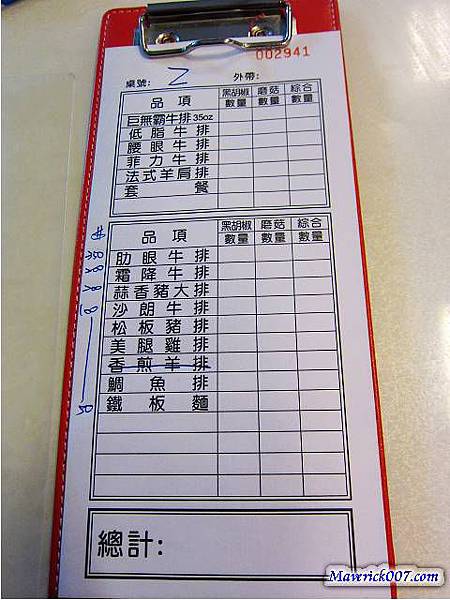 002941
桌號: 2 外帶:
品項 黑胡椒 蘑菇 綜合
數量 數量 數量
巨無霸牛排35oz
低脂牛排
腰眼牛排
菲力牛排
法式羊肩排
套餐
品項 黑胡椒 蘑菇 綜合
數量 數量 數量
肋眼牛排
霜降牛排
蒜香豬大排
沙朗牛排
松板豬排
美腿雞排
香煎羊排
鯛魚排
鐵板麵
總計:
Maverick007.com